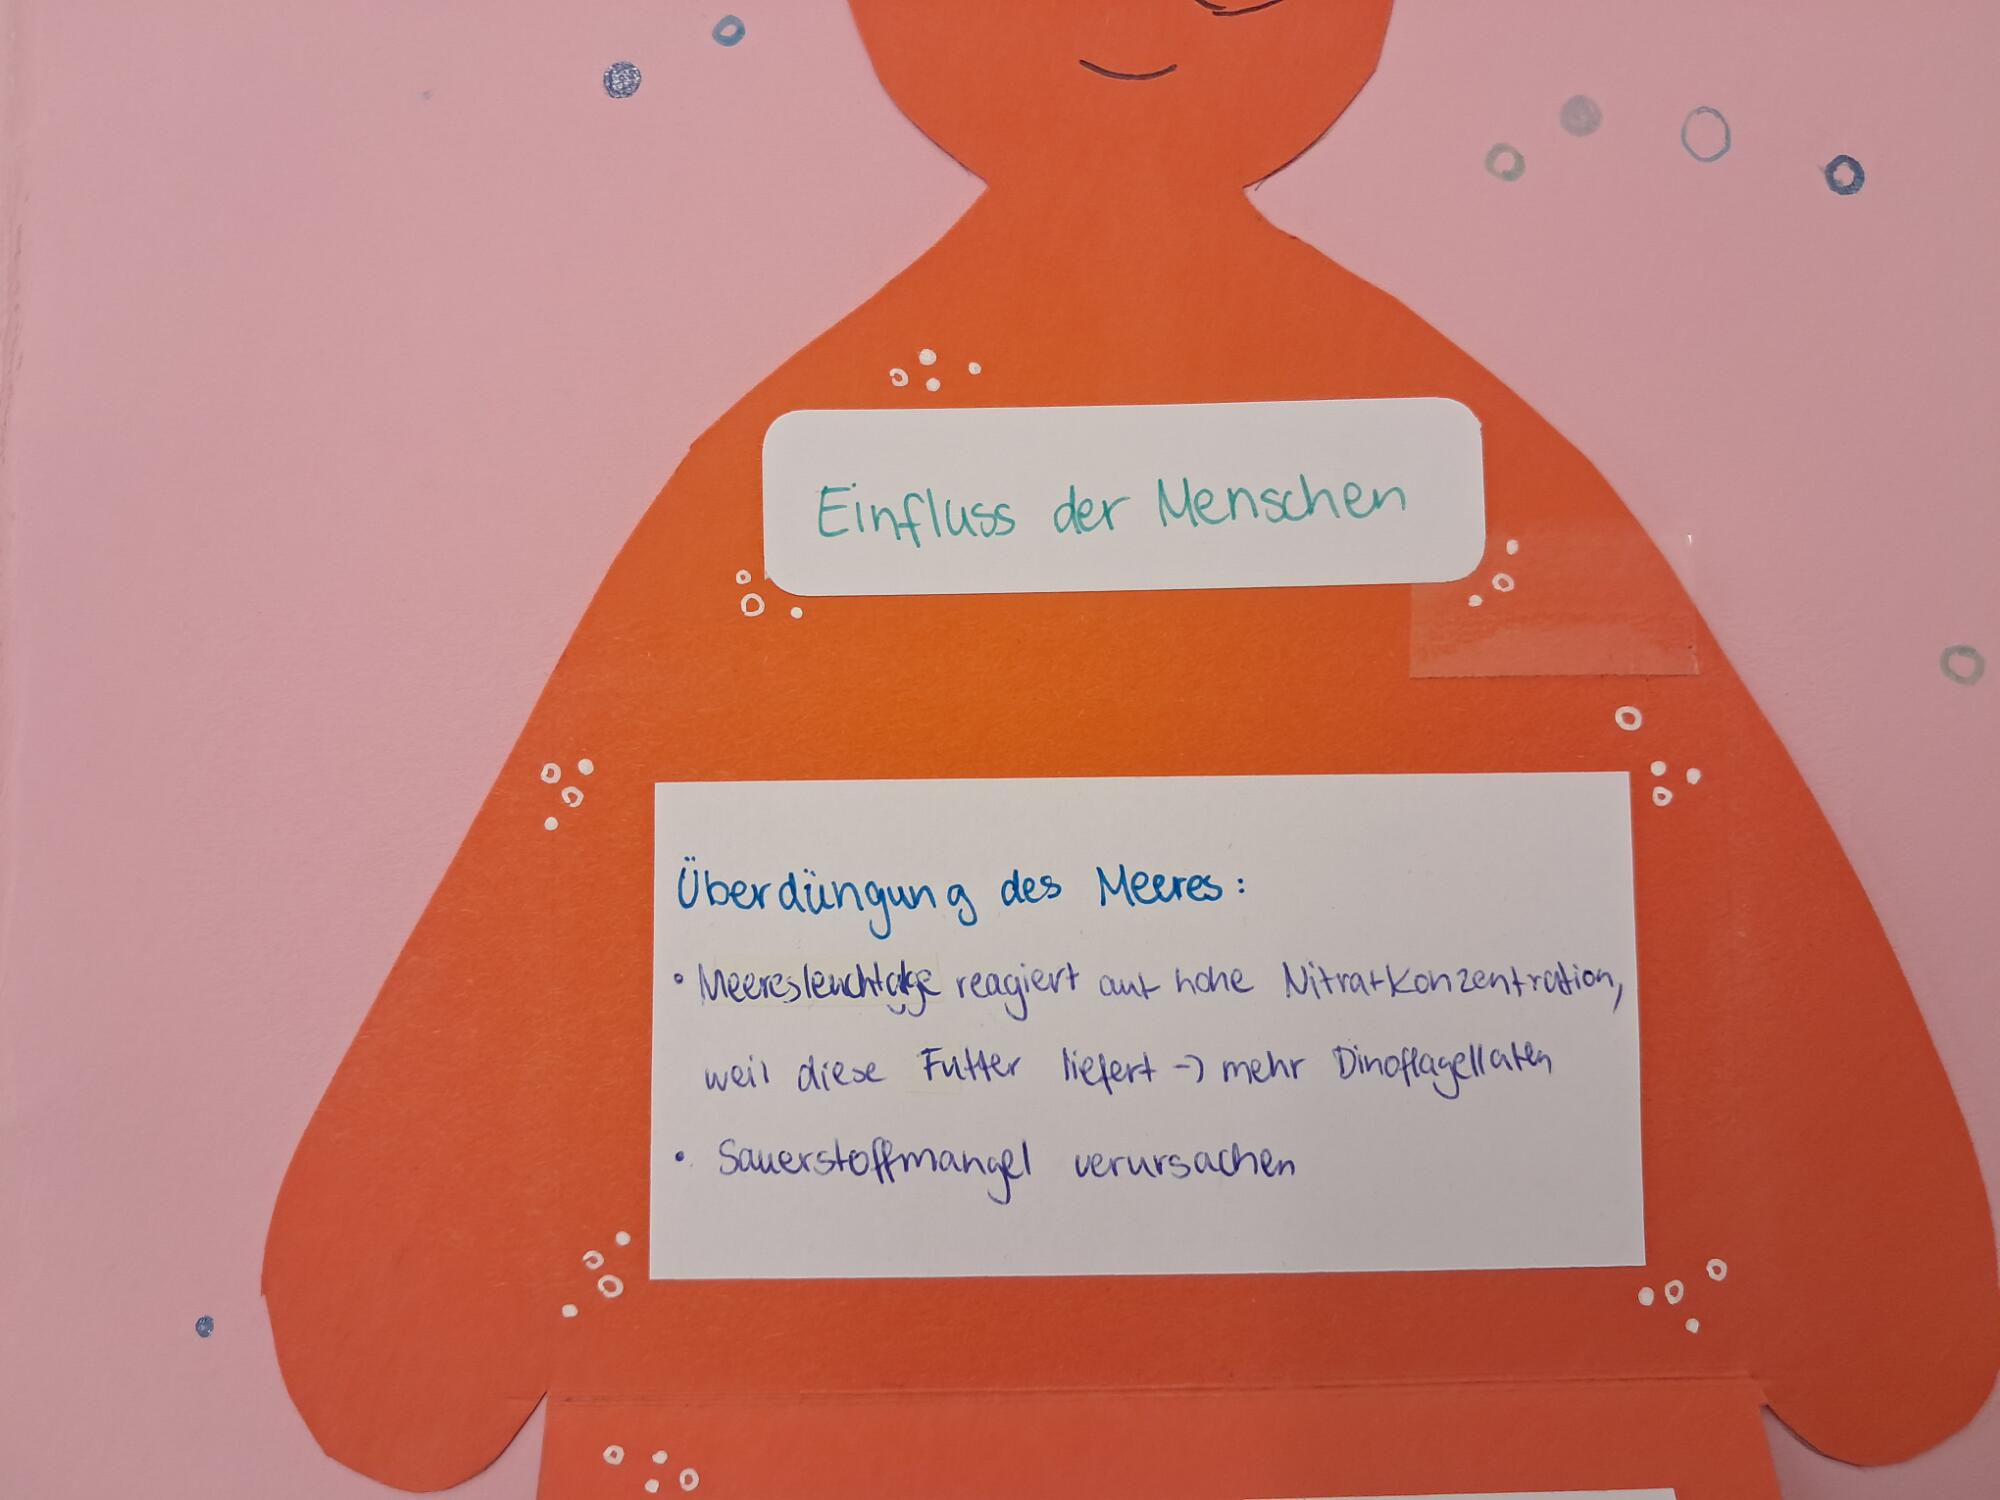 Einfluss der Menschen
Überdüngung des Meeres:
• Meeresleuchtalge reagiert auf hohe Nitratkonzentration,
weil diese Futter liefert -> mehr Dinoflagellaten
• Sauerstoffmangel verursachen